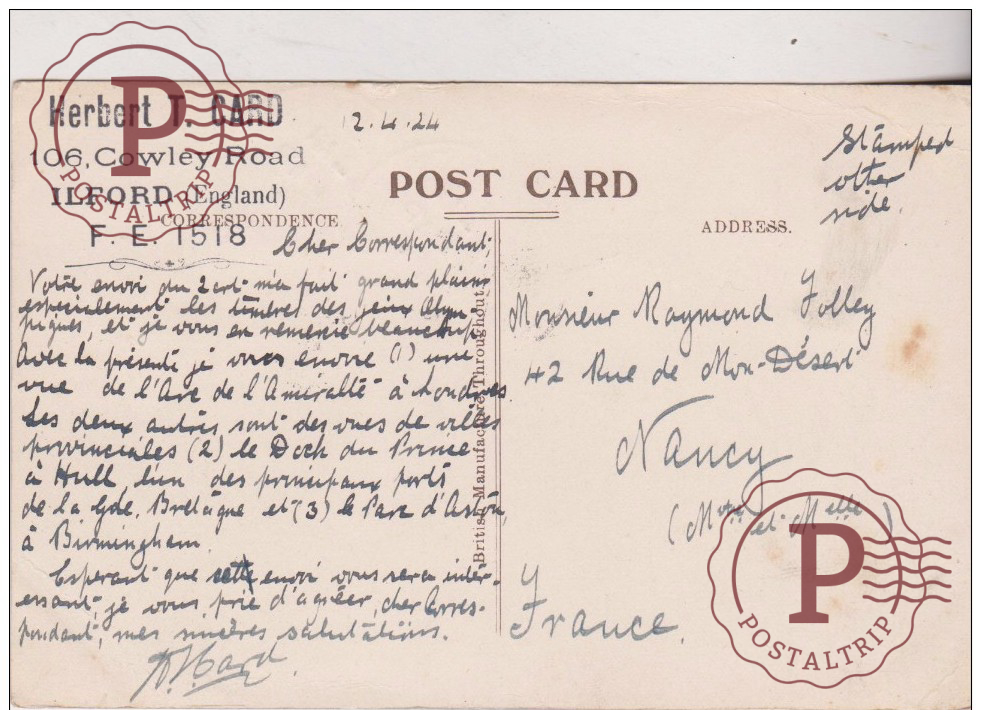 Herbert T. CARD
106, Cowley Road
ILFORD (England)
CORRESPONDENCE
F. E. 1518
12.4.24
POST CARD
Stamped
other
side.
ADDRESS.
Cher Correspondant,
Votre envoi du 2 crt m'a fait grand plaisir
especialement les timbres des jeux Olym-
piques, et je vous en remercie beaucoup.
Avec la présente je vous envoie (1) une
vue de l'Arc de l'Amiralté à Londres.
Les deux autres sont des vues de villes
provinciales (2) le Dock du Prince
à Hull, l'un des principaux ports
de la Gde. Bretagne et (3) le Parc d'Aston,
à Birmingham.
Esperant que cette envoi vous sera intér-
essant, je vous prie d'agréer, cher Corres-
pondant, mes sincères salutations.
H.T. Card
British Manufacture Throughout.
Monsieur Raymond Jolley
42 Rue de Mon-Désert
Nancy
(Mthe et Mlle)
France.
POSTALTRIP
POSTALTRIP